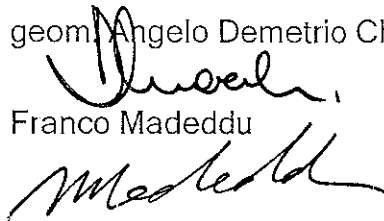 geom. Angelo Demetrio Ch
Franco Madeddu